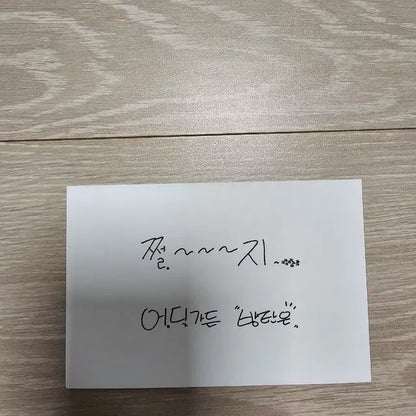 쩔~~~지....
어딜가든 "방탄은"